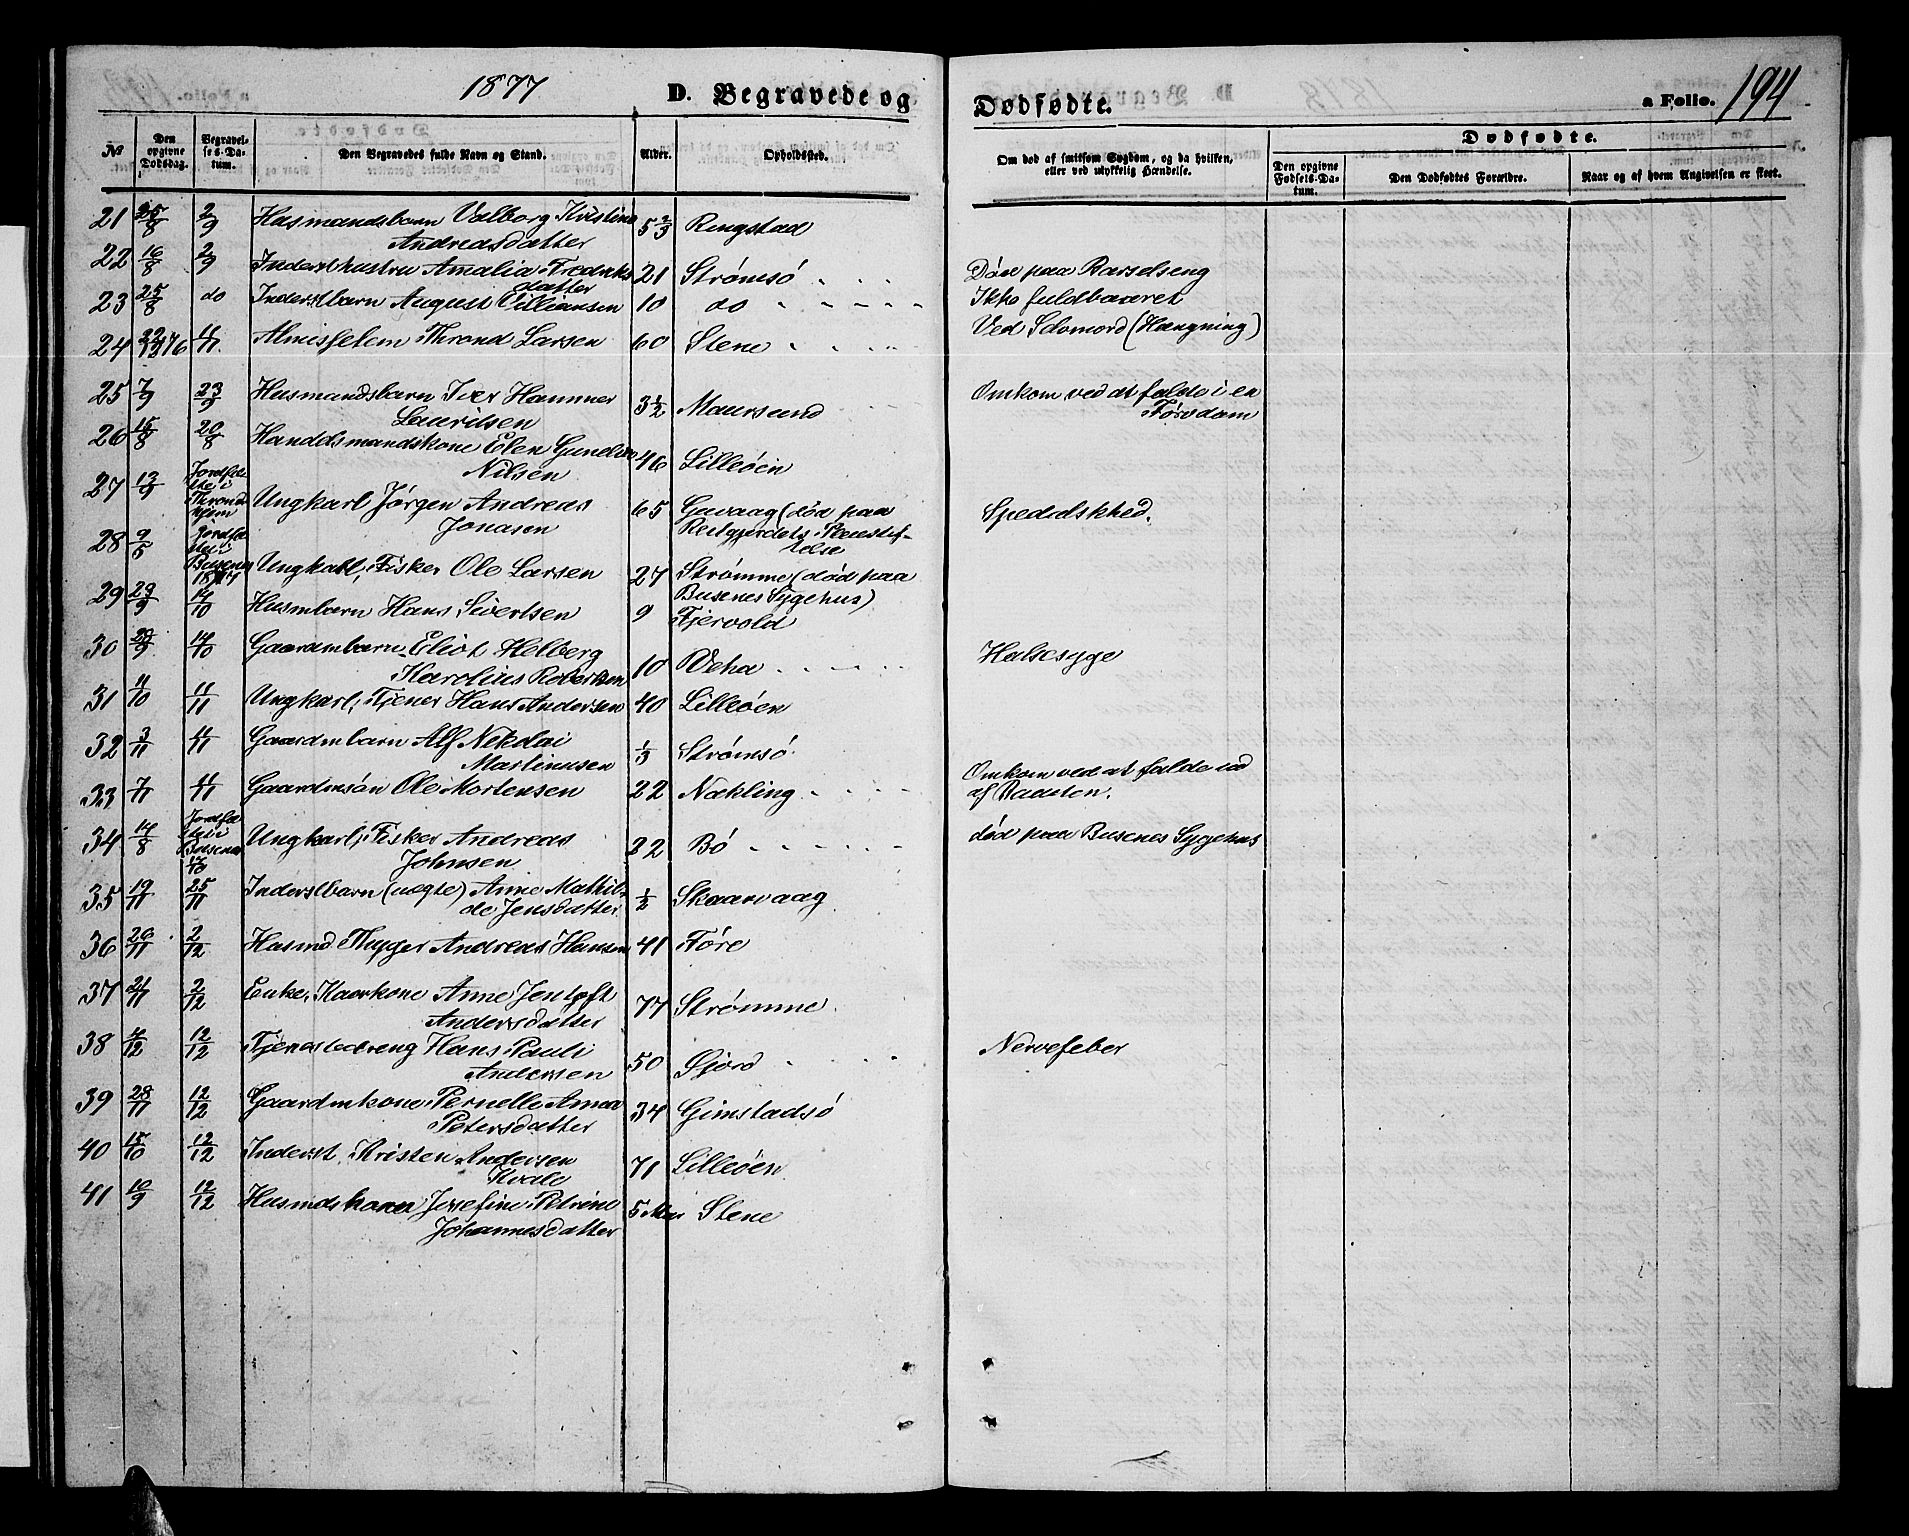 1877 D. Begravede og Dødfødte. a Folio. 194
No
Den opgivne Dødsdag.
Begravelses-Datum.
Den Begravedes fulde Navn og Stand.
Alder.
Opholdssted.
Om død af smitsom Sygdom, og da hvilken, eller ved ulykkelig Hændelse.
Dødfødte.
Den opgivne Fødsels-Datum.
Den Dødfødtes Forældre.
Naar og af hvem Angivelsen er skeet.
21 25/8 2/9 Husmandsbarn Valborg Kristine 5 2/3 Ringstad
Andreasdatter
22 16/8 2/9 Indersthustru Amalia Fredriks 21 Strømsø Døde paa Barselseng
datter
23 25/8 do Inderstbarn August Villiansen 10 do Ikke fuldbaaret
24 22/12 76 11/11 Almisselem Thrond Larsen 60 Stene Ved Selvmord (Hængning)
25 7/9 23/9 Husmandsbarn Iver Hammer 3 1/2 Maursund Omkom ved at falde i en
Lauritsen Tørvdam
26 15/8 20/8 Handelsmandskone Elen Gundine 46 Lilleøen
Nilsen
27 13/9 Jordfæstet i Throndhjem Ungkarl Jørgen Andreas 65 Guvaag (død paa Spedalskhed.
Jonasen Reitgjerdets Pleiestiftelse
28 9/5 Jordfæstet i Busenes 1877 Ungkarl, Fisker Ole Larsen 27 Strømme (død paa
Busenes Sygehus)
29 23/9 14/10 Husmbarn Hans Sivertsen 9 Fjervold
30 28/9 14/10 Gaardmbarn Eliot Helberg 10 Veha Halsesyge
Karolius Robertsen
31 11/10 11/11 Ungkarl, Tjener Hans Andersen 40 Lilleøen
32 3/11 11/11 Gaardmbarn Alf Nekolai 1/3 Strømsø
Martinusen
33 7/11 11/11 Gaardmsøn Ole Mortensen 22 Nækling Omkom ved at falde ud
af Baaden.
34 14/8 Jordfæstet i Busenes Ungkarl, Fisker Andreas 22 Bø død paa Busenes Sygehus
Johnsen
35 19/11 25/11 Inderstbarn (uægte) Anne Mathil- 1/2 Skaarvaag
de Jensdatter
36 26/11 2/12 Husmd Thyger Andreas Hansen 41 Føre
37 21/11 2/12 Enke, Kaarkone Anne Jentoft 77 Strømme
Andersdatter
38 4/12 12/12 Tjenestedreng Hans Pauli 50 Gjord Nervefeber
Andersen
39 28/11 12/12 Gaardmkone Pernelle Anna 34 Gimstadsø
Petersdatter
40 15/10 12/12 Inderst Kristen Andersen 71 Lilleøen
Kvale
41 10/9 12/12 Husmdsbarn Josefine Petrine 5 Mdr Stene
Johannesdatter